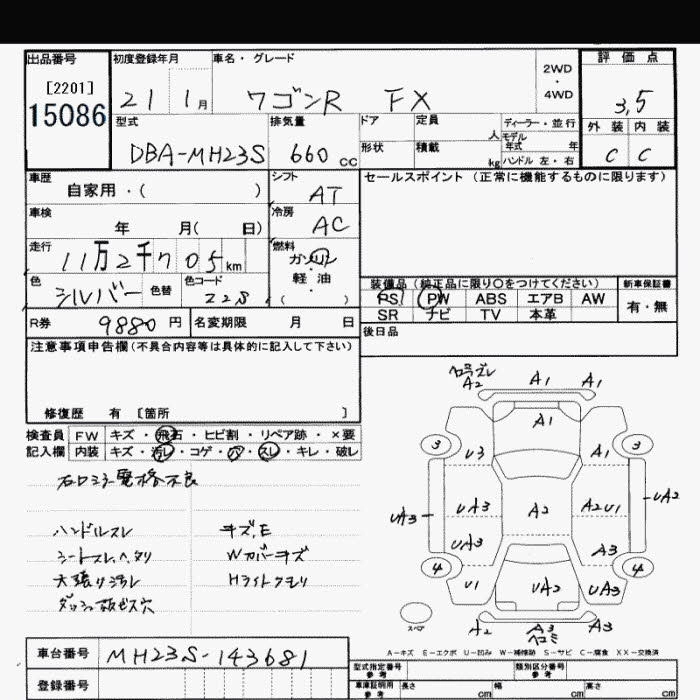 出品番号 初度登録年月 車名・グレード 2WD・4WD 評価点
[2201]
15086
21 1月 ワゴンR FX 3,5
型式 排気量 ドア 定員 人 ディーラー・並行 外装 内装
モデル年式 年
DBA-MH23S 660cc 形状 積載 kg ハンドル 左・右 C C
車歴 シフト セールスポイント(正常に機能するものに限ります)
自家用・( ) AT
車検 冷房
年 月( 日) AC
走行 燃料
11万2千705km ガソリン・軽油
色 色替 色コード ( )
シルバー Z2S
装備品(純正品に限り○をつけてください) 新車保証書
PS PW ABS エアB AW 有・無
SR ナビ TV 本革
R券 9880円 名変期限 月 日
後日品
注意事項申告欄(不具合内容等は具体的に記入して下さい)
修復歴 有 [箇所 ]
検査員 FW キズ・飛石・ヒビ割・リペア跡・×要
記入欄 内装 キズ・汚レ・コゲ・穴・スレ・キレ・破レ
右ロミラー電格不良
ハンドルスレ キズ、E
シートスレ、ヘタリ Wカバーキズ
天張り汚レ Hライトクモリ
ダッシュ板ビス穴
A2 A1 A1
A1
3 3
U3 A1
UA3 UA3 A2 A2U1 UA2
UA3 A3
4 4
U1 UA2 UA3
スペア
A2 A3 A3
ヘコミ
A-キズ E-エクボ U-凹み W-補修跡 S-サビ C-腐食 XX-交換済
車台番号 MH23S-143681
型式指定番号 参考 類別区分番号 参考
登録番号
車庫証明用 参考 長さ cm 幅 cm 高さ cm